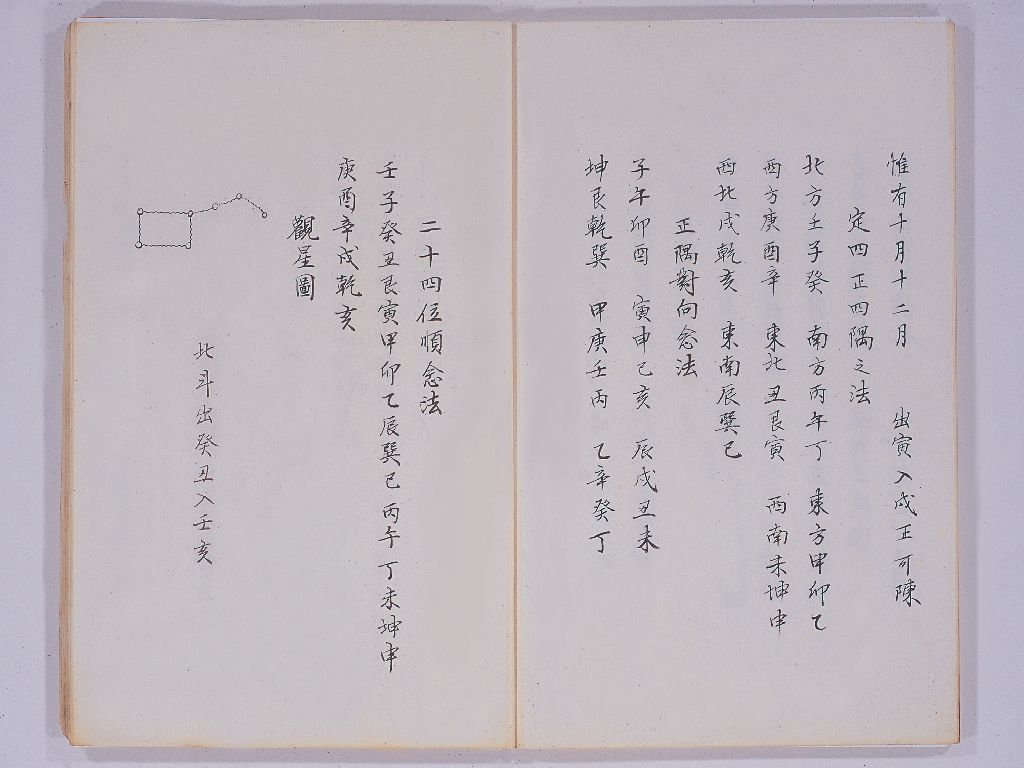 惟有十月十二月　出寅入戌正可陳
定四正四隅之法
北方壬子癸　南方丙午丁　東方甲卯乙
西方庚酉辛　東北丑艮寅　西南未坤申
西北戌乾亥　東南辰巽巳
正隅對向念法
子午卯酉　寅申巳亥　辰戌丑未
坤艮乾巽　甲庚壬丙　乙辛癸丁
二十四位順念法
壬子癸丑艮寅甲卯乙辰巽巳丙午丁未坤申
庚酉辛戌乾亥
觀星圖
北斗出癸丑入壬亥